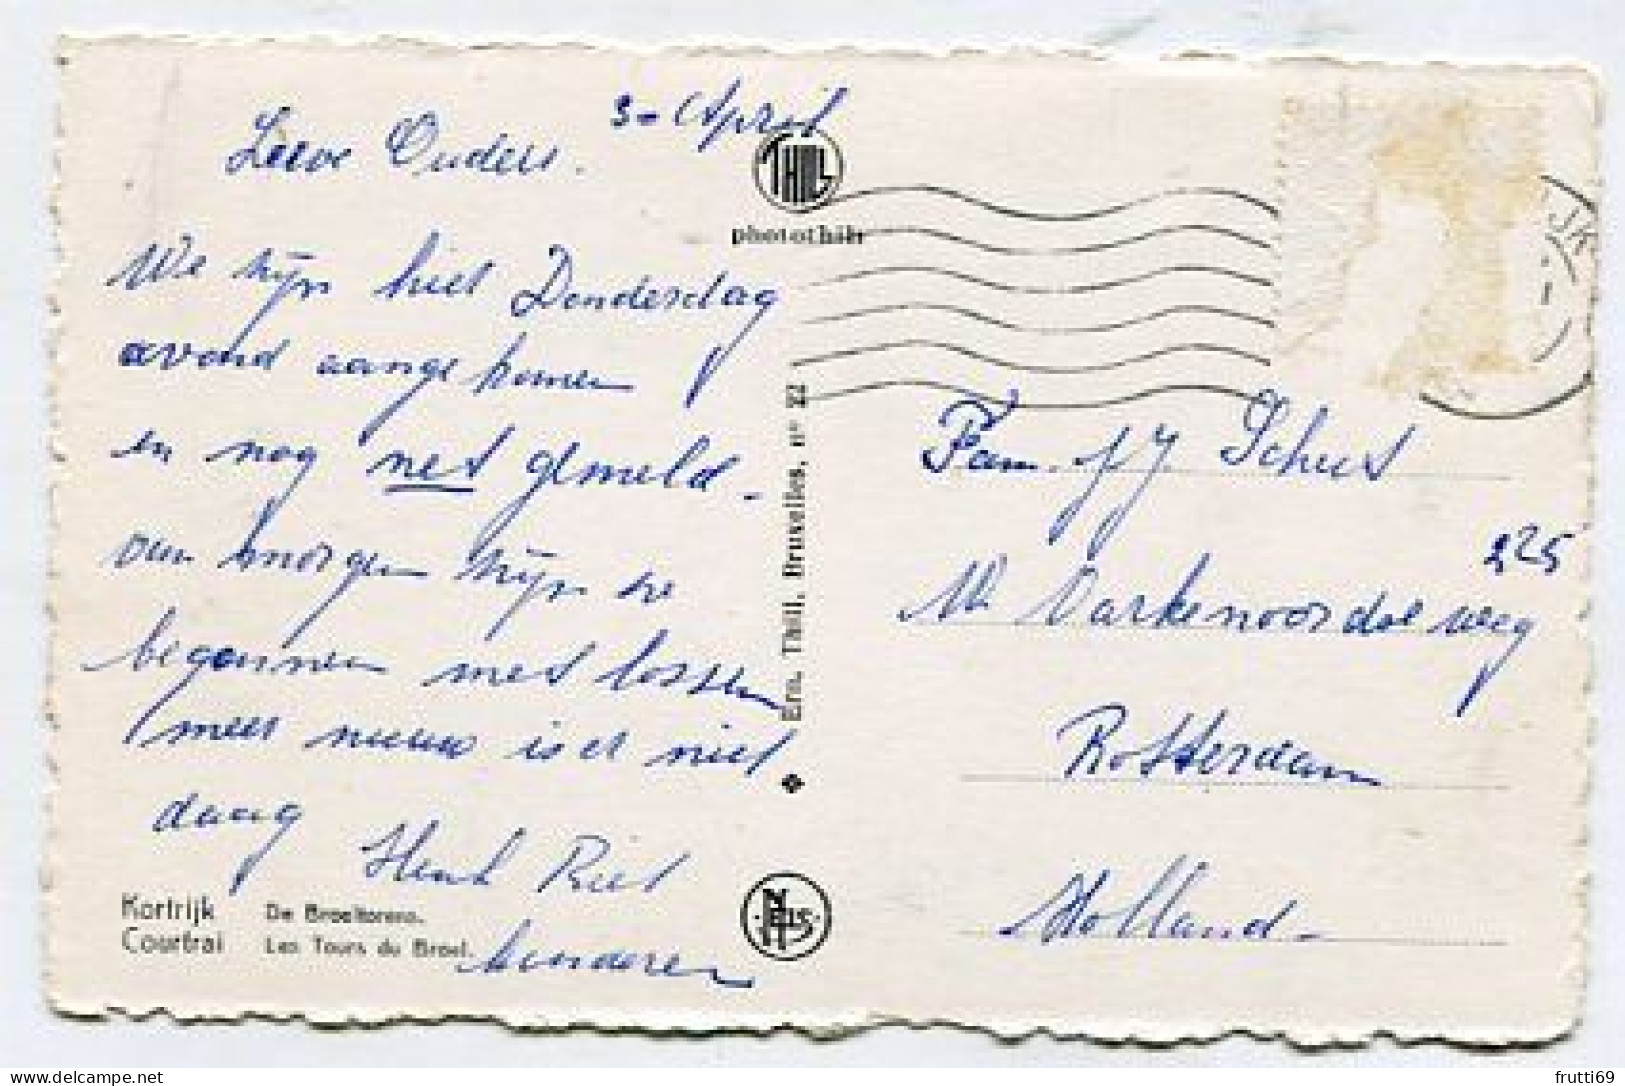 3 - April
Lieve Ouders.
We zijn hier Donderdag
avond aangekomen
en nog net gemeld -
van morgen zijn we
begonnen met lossen
meer nieuws is er niet
daag
Henk Riet
kinderen
Kortrijk De Broeltorens.
Courtrai Les Tours du Broel.
THILL
photothill
Ern. Thill, Bruxelles, n° 22
NELS
JK
Fam. J. J. Schut
225
W Varkenoordseweg
Rotterdam
Holland -
frutti69